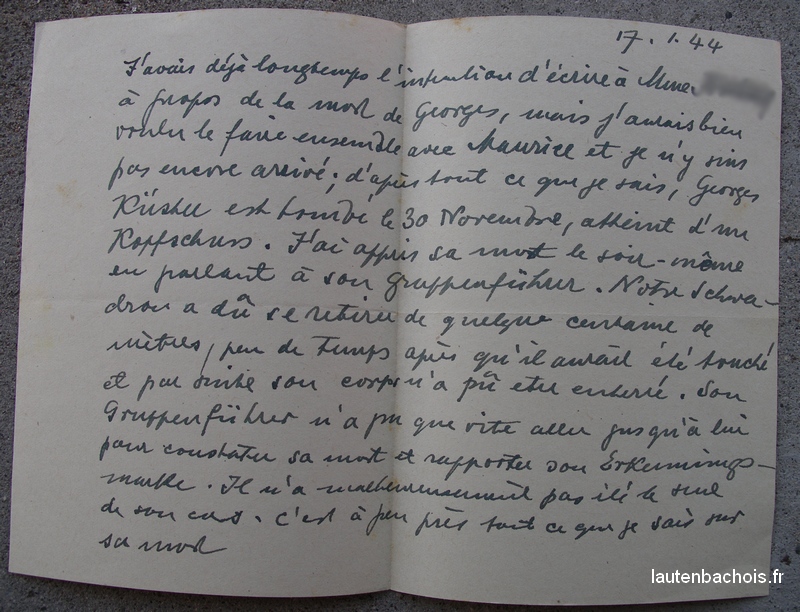 17.1.44
J'avais déjà longtemps l'intention d'écrire à Mme
à propos de la mort de Georges, mais j'aurais bien
voulu le faire ensemble avec Maurice et je n'y suis
pas encore arrivé; d'après tout ce que je sais, Georges
est tombé le 30 Novembre, atteint d'un
Kopfschuss. J'ai appris sa mort le soir-même
en parlant à son Gruppenführer. Notre Schwa-
dron a dû se retirer de quelque centaine de
mètres, peu de temps après qu'il aurait été touché
et par suite son corps n'a pû etre enterré. Son
Gruppenführer n'a pu que vite aller jusqu'à lui
pour constater sa mort et rapporter son Erkennungs-
marke. Il n'a malheureusement pas été le seul
de son cas. C'est à peu près tout ce que je sais sur
sa mort
lautenbachois.fr